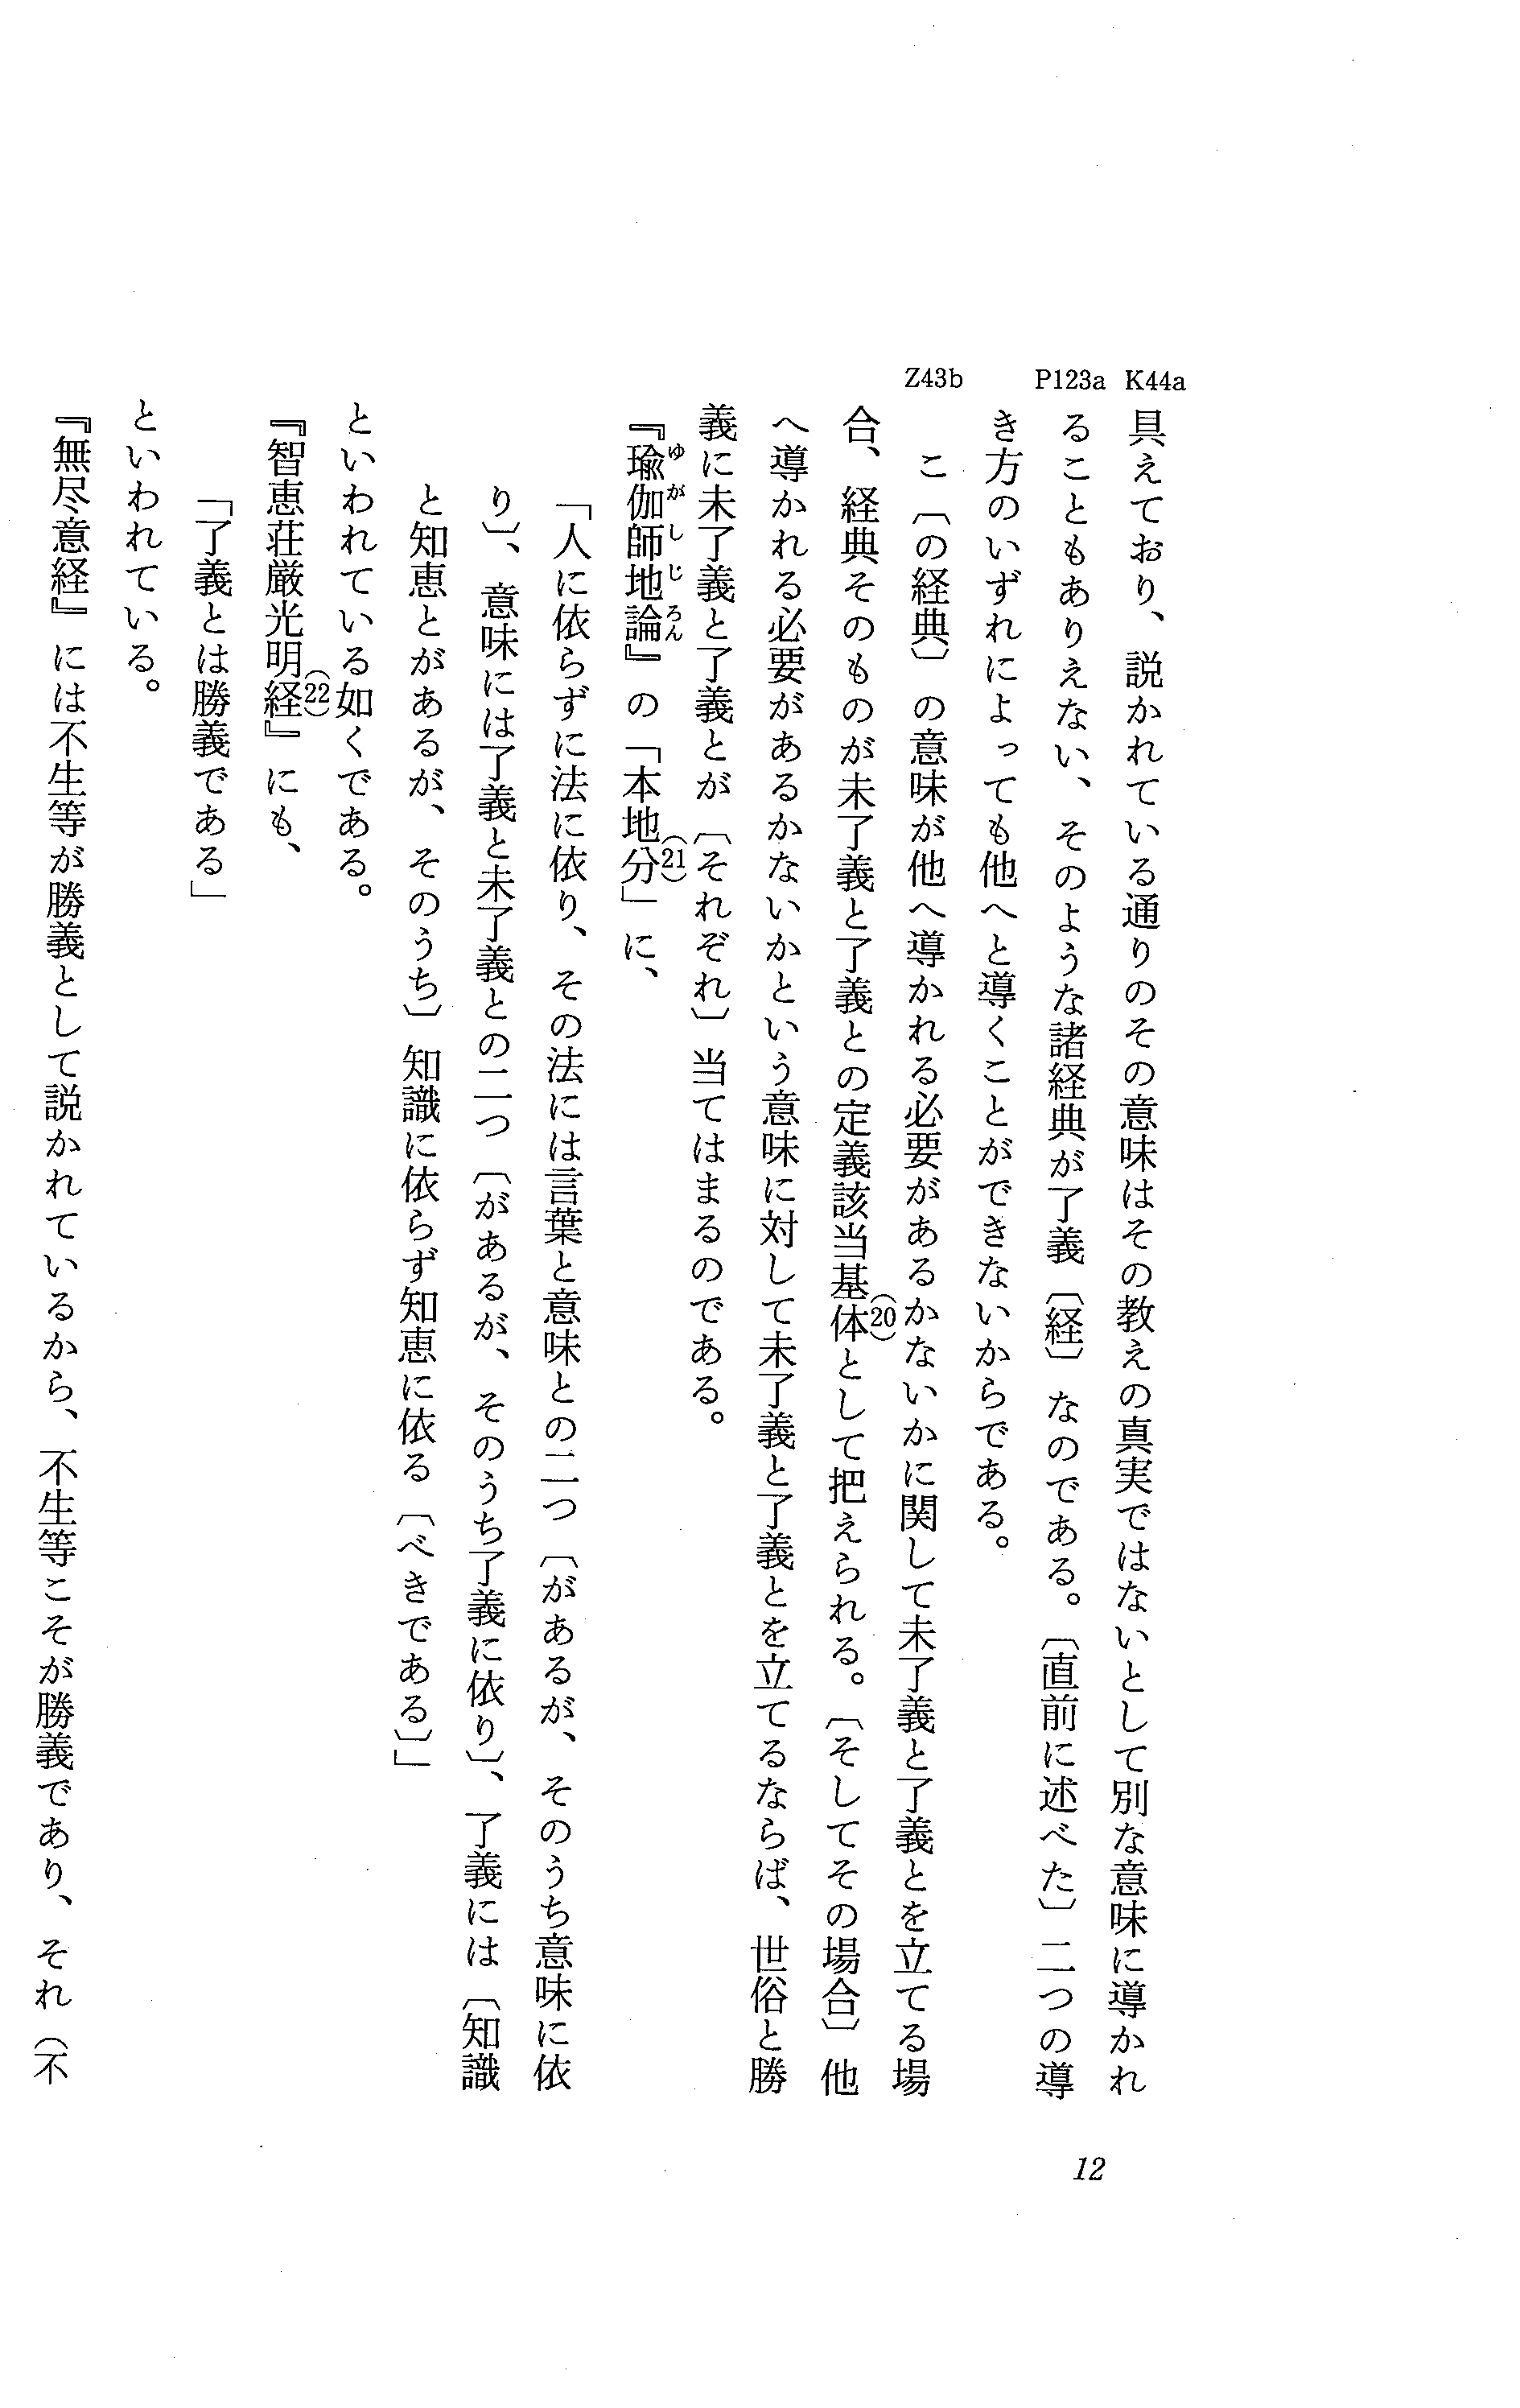 K44a
P123a
Z43b
具えており、説かれている通りのその意味はその教えの真実ではないとして別な意味に導かれ
ることもありえない、そのような諸経典が了義〔経〕なのである。〔直前に述べた〕二つの導
き方のいずれによっても他へと導くことができないからである。
こ〔の経典〕の意味が他へ導かれる必要があるかないかに関して未了義と了義とを立てる場
合、経典そのものが未了義と了義との定義該当基体(20)として把えられる。〔そしてその場合〕他
へ導かれる必要があるかないかという意味に対して未了義と了義とを立てるならば、世俗と勝
義に未了義と了義とが〔それぞれ〕当てはまるのである。
『瑜伽師地論(ゆがしじろん)』の「本地分(21)」に、
「人に依らずに法に依り、その法には言葉と意味との二つ〔があるが、そのうち意味に依
り〕、意味には了義と未了義との二つ〔があるが、そのうち了義に依り〕、了義には〔知識
と知恵とがあるが、そのうち〕知識に依らず知恵に依る〔べきである〕」
といわれている如くである。
『智恵荘厳光明経(22)』にも、
「了義とは勝義である」
といわれている。
『無尽意経』には不生等が勝義として説かれているから、不生等こそが勝義であり、それ（不
12